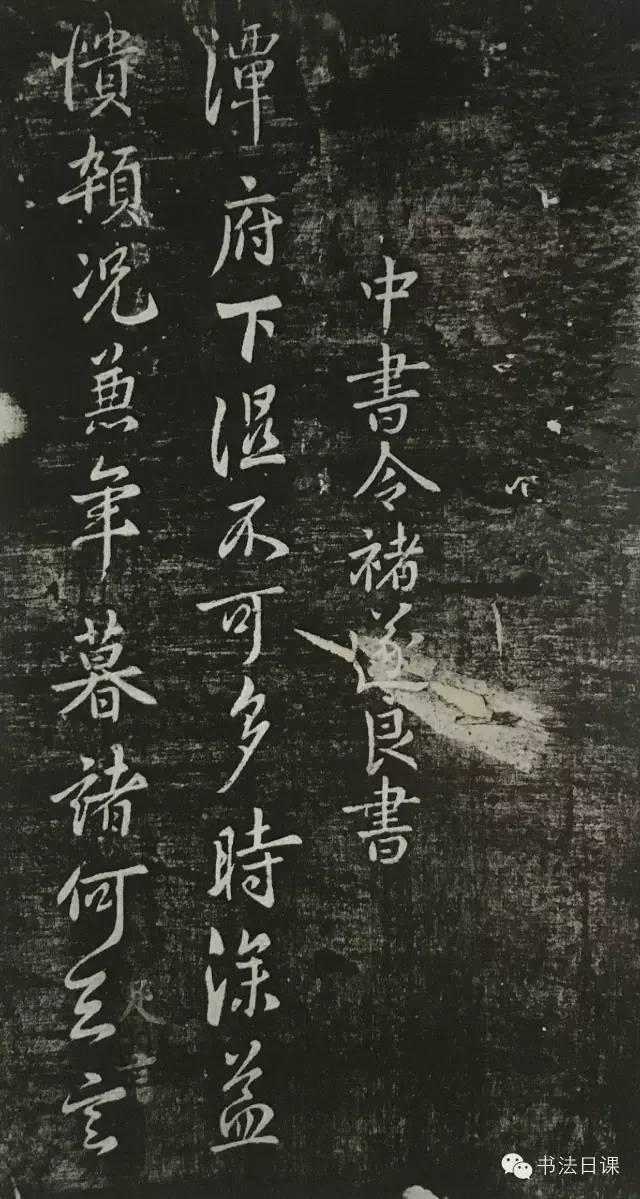 中書令褚遂良書
潭府下湿不可多時深益
憒頓况兼年暮諸何足言
足言
书法日课